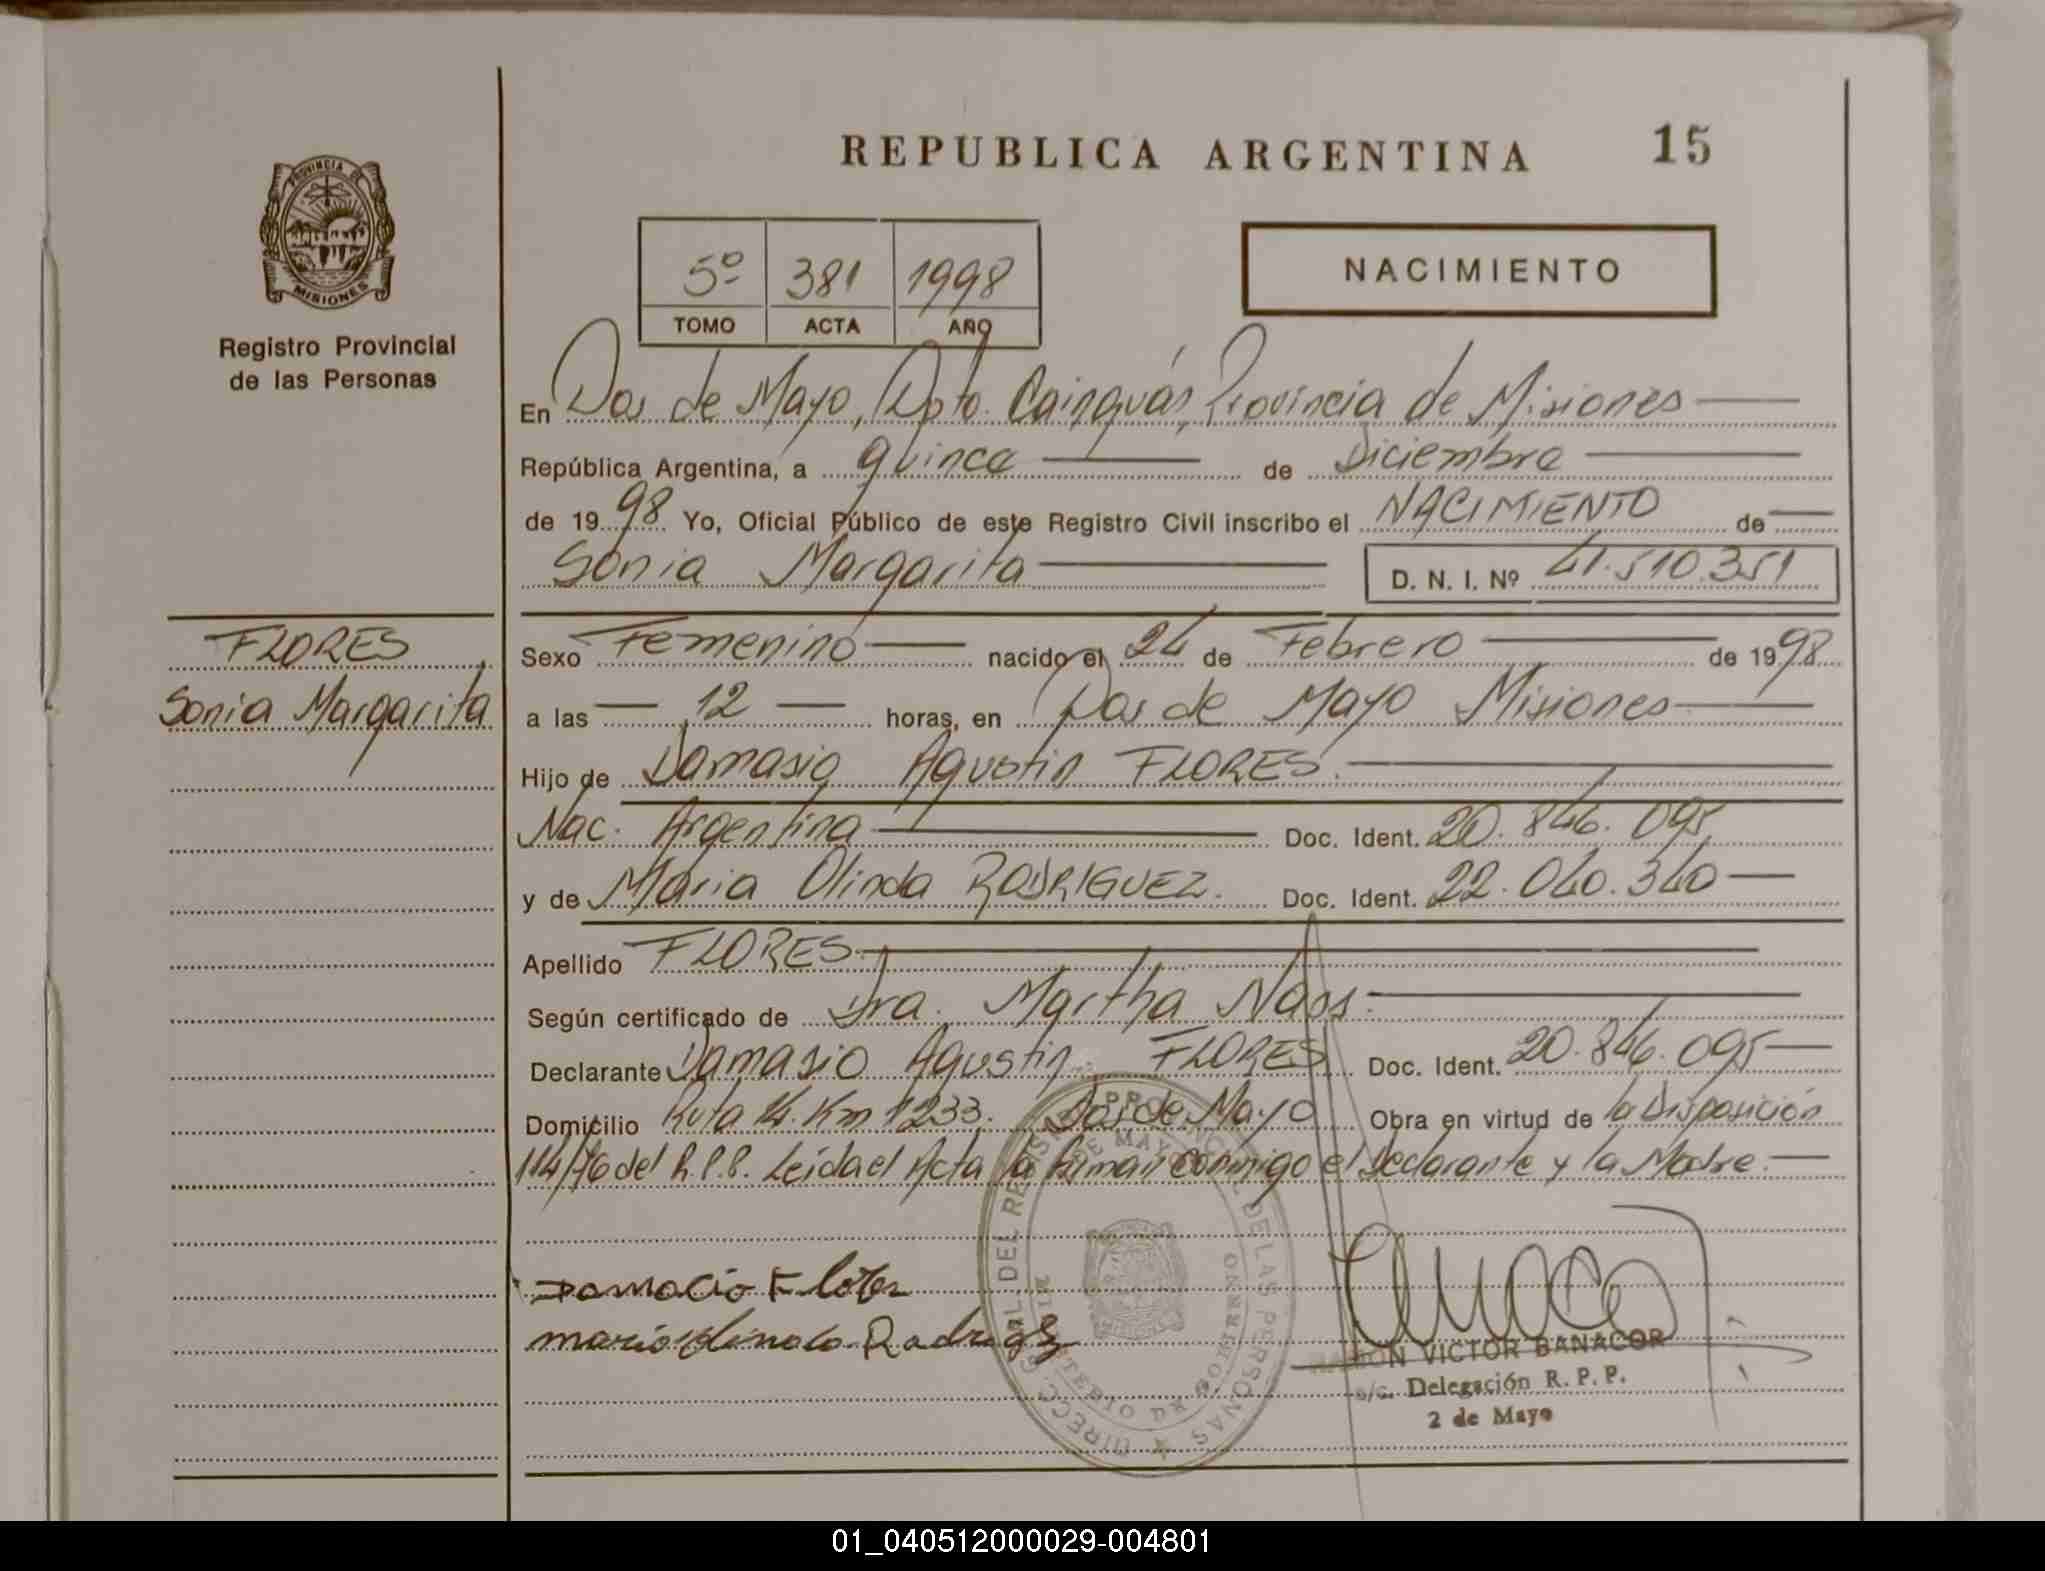 REPUBLICA ARGENTINA 15
PROVINCIA DE
MISIONES
Registro Provincial
de las Personas
5º 381 1998
TOMO ACTA AÑO
NACIMIENTO
En Dos de Mayo, Dpto. Cainguás, Provincia de Misiones
República Argentina, a quince de Diciembre
de 1998 Yo, Oficial Público de este Registro Civil inscribo el NACIMIENTO de
Sonia Margarita D. N. I. Nº 41.510.351
FLORES
Sonia Margarita
Sexo Femenino nacido el 24 de Febrero de 1998
a las 12 horas, en Dos de Mayo Misiones
Hijo de Damasio Agustin FLORES.
Nac. Argentina Doc. Ident. 20.846.095
y de Maria Olinda RODRIGUEZ. Doc. Ident. 22.040.340
Apellido FLORES
Según certificado de Dra. Martha Nass.
Declarante Damasio Agustin FLORES Doc. Ident. 20.846.095
Domicilio Ruta 14. Km 1233. Dos de Mayo Obra en virtud de la Disposición
114/76 del R.P.P. Leida el Acta la firman conmigo el Declarante y la Madre.
Damacio Flores
RAMON VICTOR BANACOR
a/c. Delegación R. P. P.
2 de Mayo
DIRECC. GRAL DEL REGISTRO PROVINCIAL DE LAS PERSONAS
DOS DE MAYO
MINISTERIO DE GOBIERNO
01_040512000029-004801